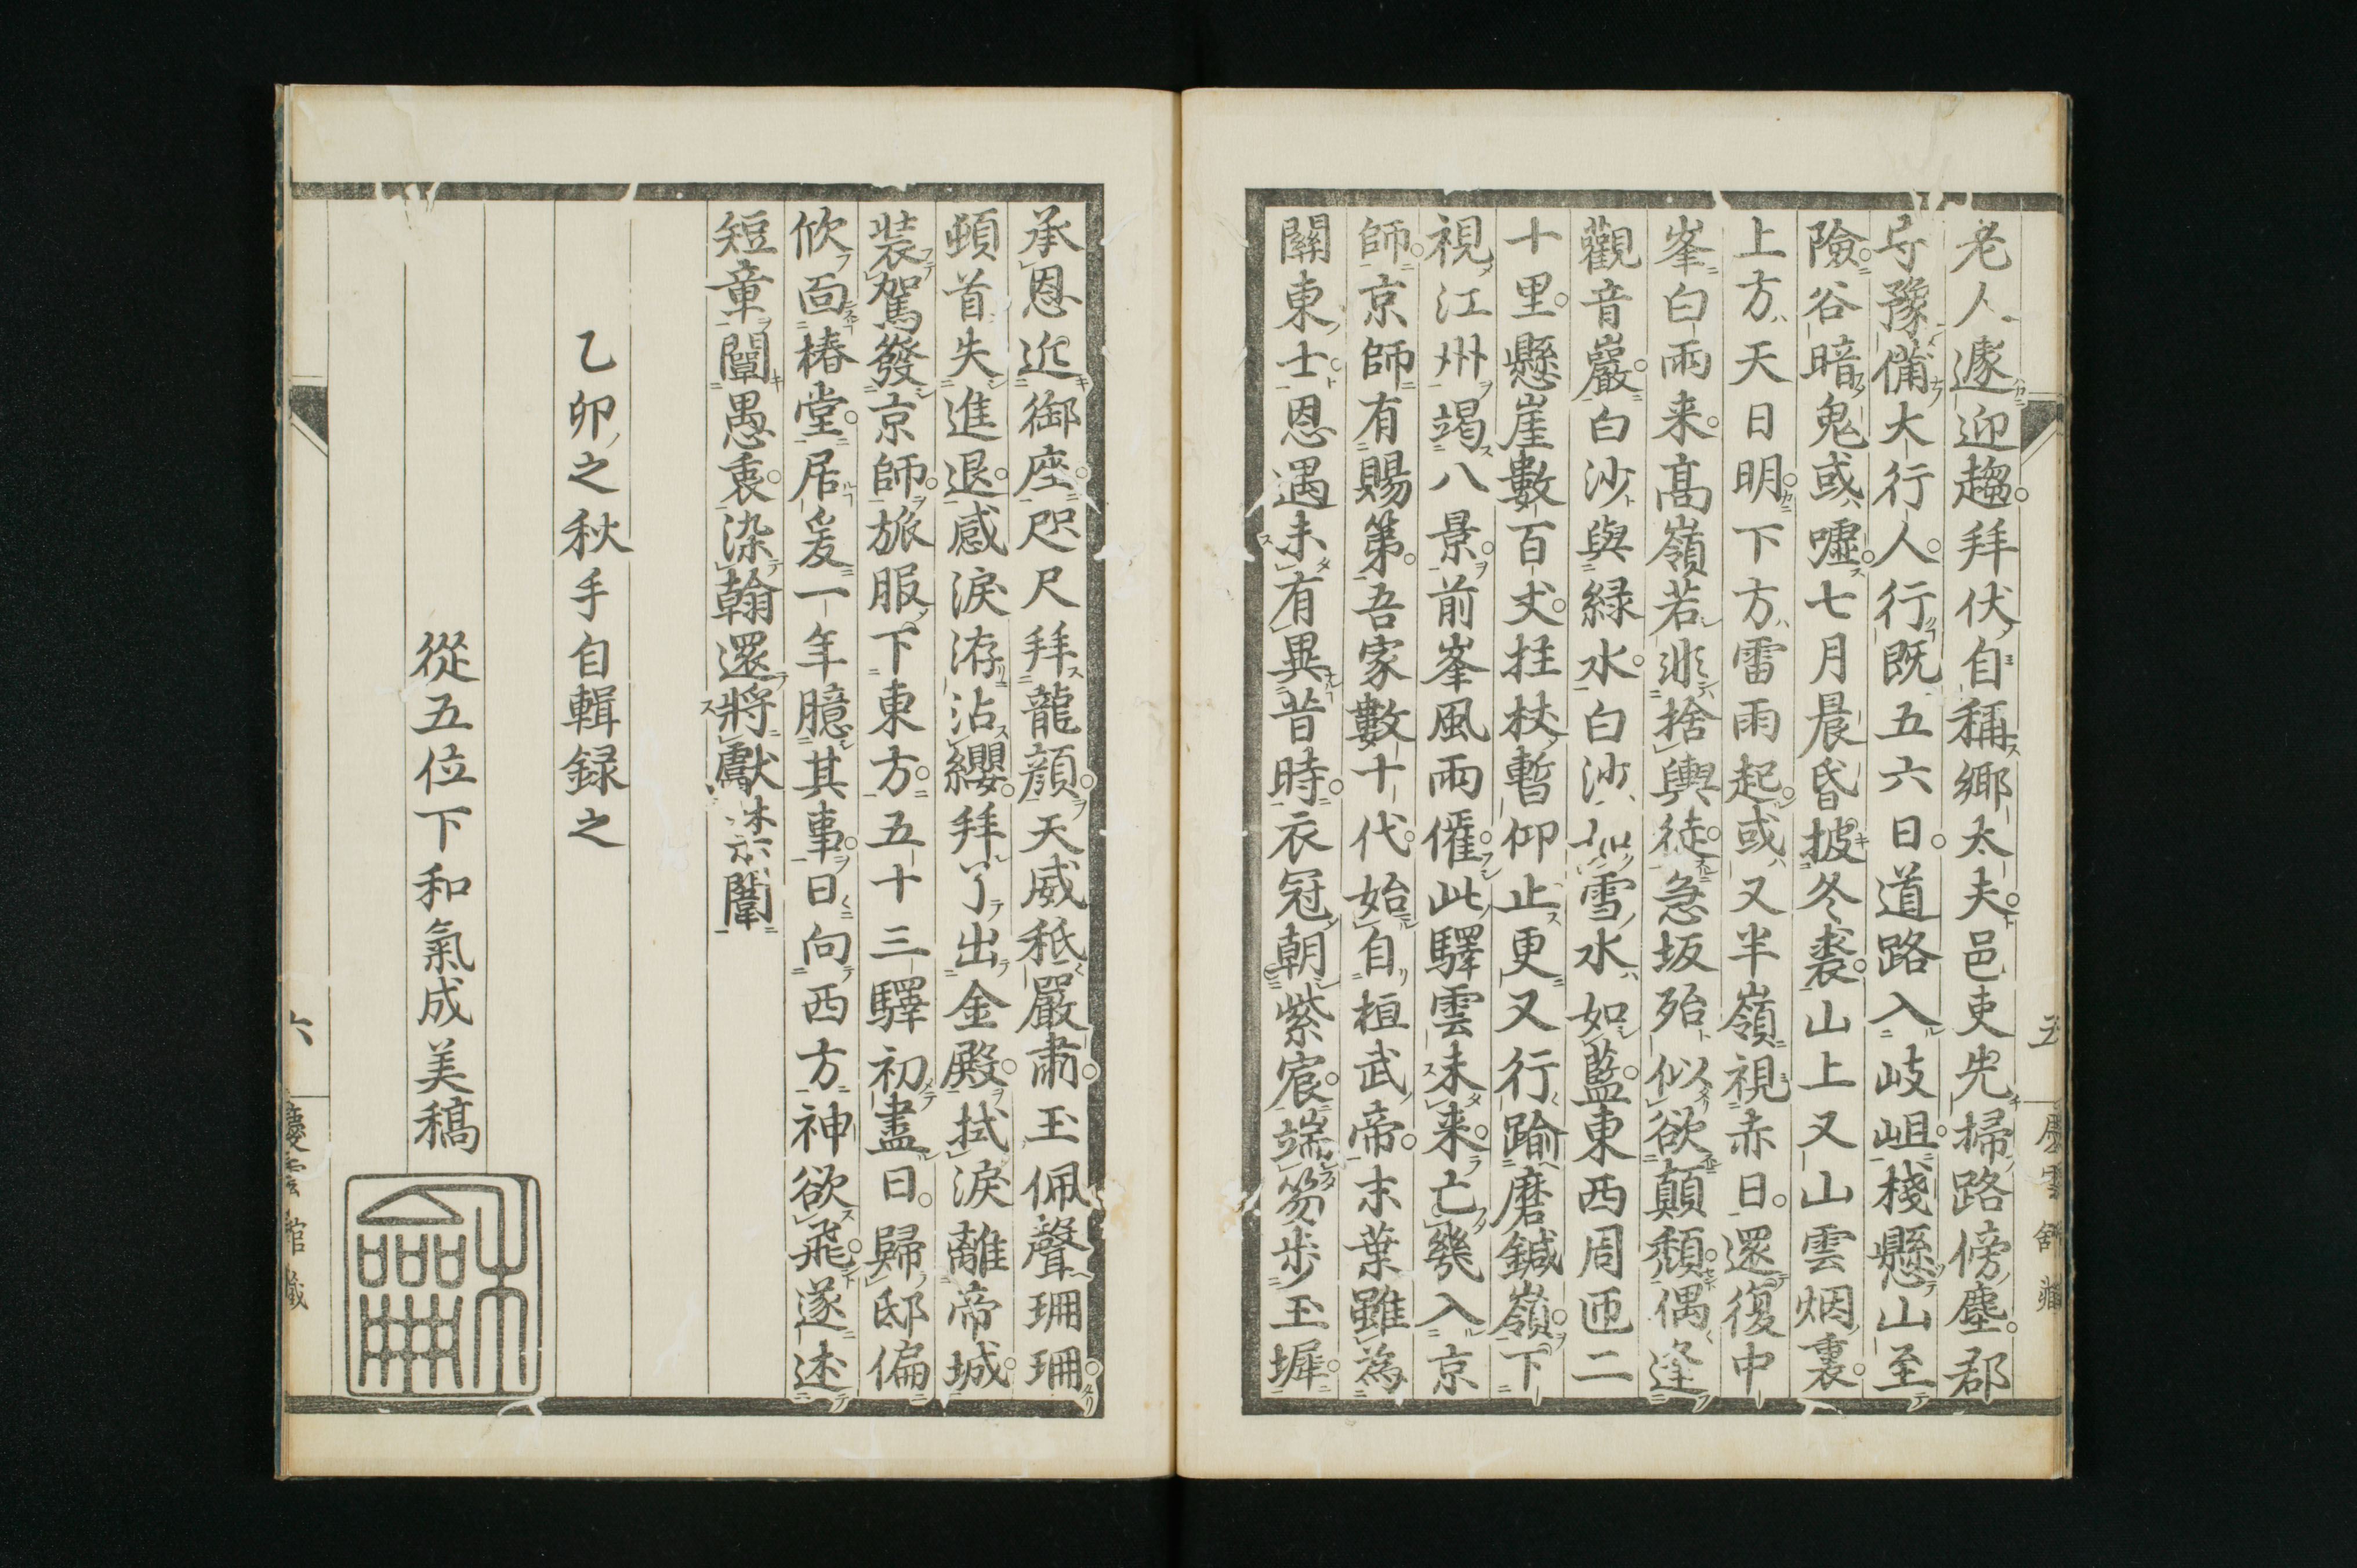 老人遽迎趨拜伏自稱鄉太夫邑吏先掃路傍塵郡
守豫備大行人行既五六日道路入岐岨棧懸山至
險谷暗鬼或嘘七月晨昏披冬裘山上又山雲烟裏
上方天日明下方雷雨起或又半嶺視赤日還復中
峯白雨来高嶺若淵捨輿徒急坂殆似欲顛頽偶逢
觀音巖白沙與緑水白沙如雪水如藍東西周匝二
十里懸崖數百丈拄杖暫仰止更又行踰磨鍼嶺下
視江州竭八景前峯風雨催此驛雲未来亡幾入京
師京師有賜第吾家數十代始自桓武帝末葉雖為
關東士恩遇未有異昔時衣冠朝紫宸端笏步玉墀
承恩近御座咫尺拜龍顔天威祗嚴肅玉佩聲珊珊
頓首失進退感淚洊沾纓拜了出金殿拭淚離帝城
裝駕發京師旅服下東方五十三驛初盡日歸邸偏
攸面椿堂居爰一年臆其事日向西方神欲飛遂述
短章闡愚衷染翰還將獻闈
乙卯之秋手自輯録之
從五位下和氣成美稿
五
六
慶雲館藏